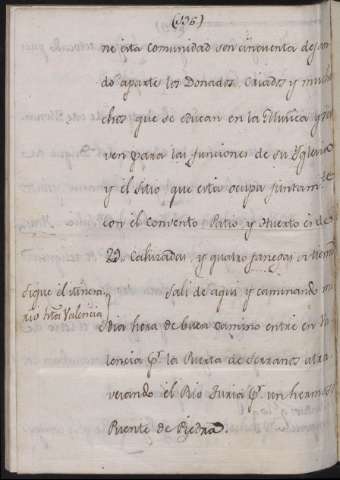 (136)
ne esta Comunidad son cinquenta dejan
do aparte los Donados, Criados y mucha
chos que se educan en la Musica y sir
ven para las funciones de su Yglesia
y el Sitio que esta ocupa juntam.te
con el Convento Patio y Huerto es de
Cahizadas, y quatro fanegas
Sigue el itinera
rio hta Valencia
Sali de aqui y caminando me
dia hora de buen camino entre en Va
lencia p.r la Puerta de Serranos atra
vesando el Rio Turia p.r un hermoso
Puente de Piedra.